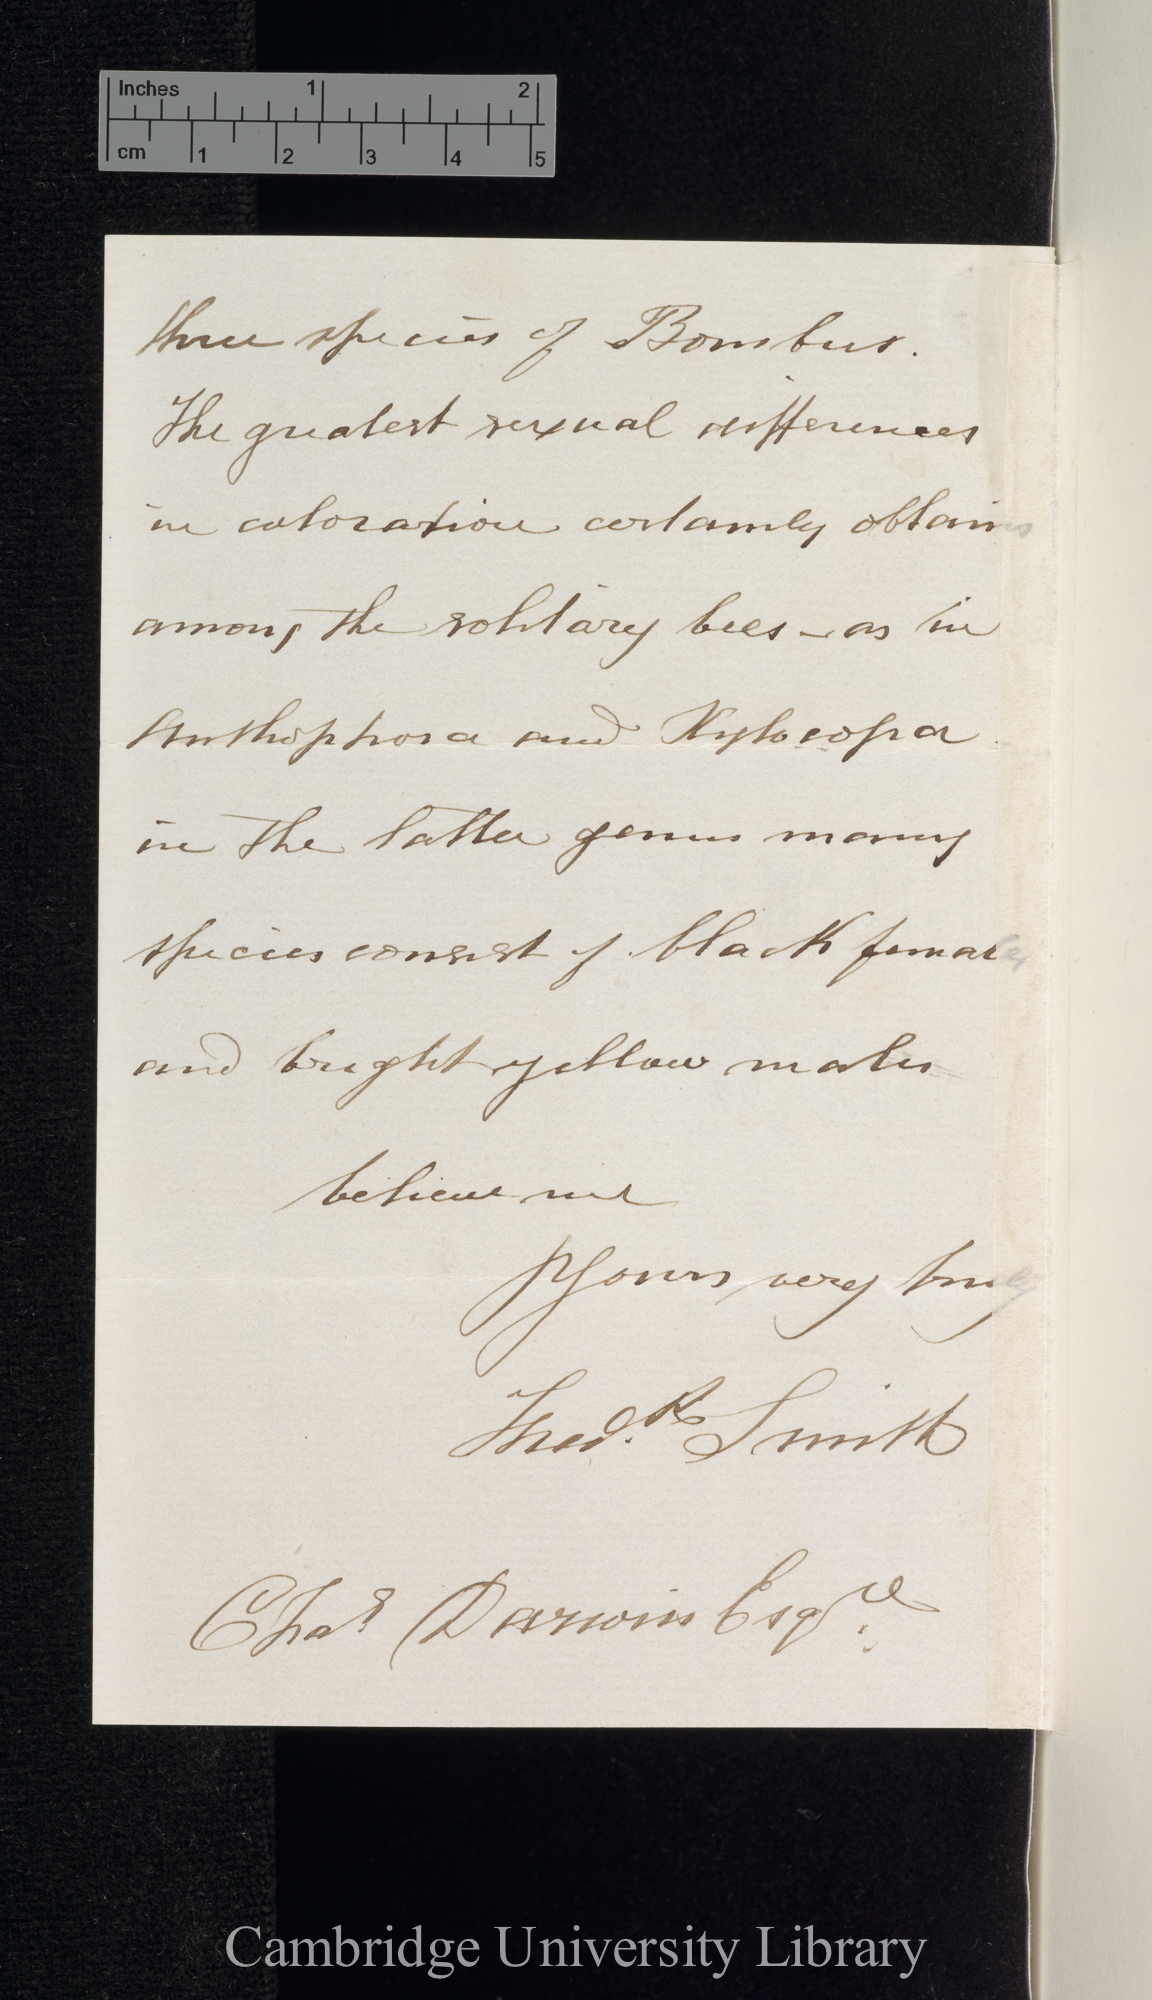 Inches 1 2
cm 1 2 3 4 5
three species of Bombus.
The greatest sexual differences
in coloration certainly obtains
among the solitary bees - as in
Anthophora and Xylocopa
in the latter genus many
species consist of black females
and bright yellow males
believe me
Yours very truly
Fred.k Smith
Chas Darwin Esqre
Cambridge University Library